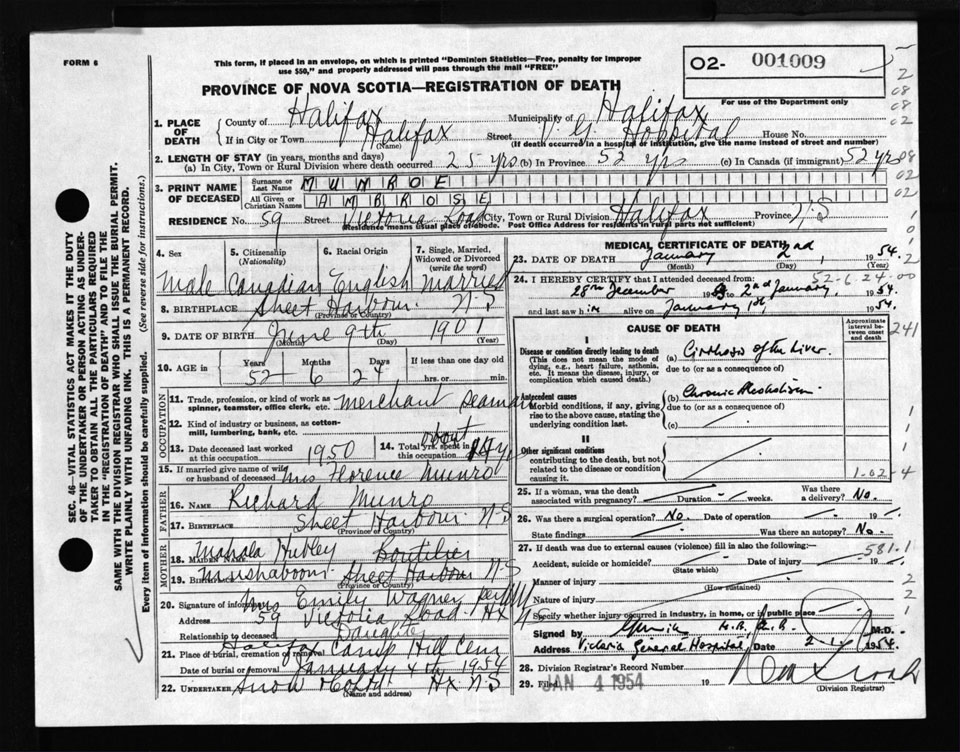 FORM 6
This form, if placed in an envelope, on which is printed "Dominion Statistics—Free, penalty for improper
use $50," and properly addressed will pass through the mail "FREE"
O2- 001009
For use of the Department only
PROVINCE OF NOVA SCOTIA—REGISTRATION OF DEATH
1. PLACE OF DEATH
County of Halifax Municipality of Halifax
If in City or Town Halifax (Name) Street V. G. Hospital House No.
(If death occurred in a hospital or institution, give the name instead of street and number)
2. LENGTH OF STAY (in years, months and days)
(a) In City, Town or Rural Division where death occurred 25 yrs (b) In Province 52 yrs (c) In Canada (if immigrant) 52 yrs
3. PRINT NAME OF DECEASED
Surname or Last Name MUNROE
All Given or Christian Names AMBROSE
RESIDENCE No. 59 Street Victoria Road City, Town or Rural Division Halifax Province N.S
(Residence means usual place of abode. Post Office Address for residents in rural parts not sufficient)
4. Sex 5. Citizenship (Nationality) 6. Racial Origin 7. Single, Married, Widowed or Divorced (write the word)
Male Canadian English Married
8. BIRTHPLACE Sheet Harbour N-S
(Province or Country)
9. DATE OF BIRTH June 9th 1901
(Month) (Day) (Year)
10. AGE in Years 52 Months 6 Days 24 If less than one day old
hrs. or min.
OCCUPATION
11. Trade, profession, or kind of work as spinner, teamster, office clerk, etc. Merchant Seaman
12. Kind of industry or business, as cotton-mill, lumbering, bank, etc.
13. Date deceased last worked at this occupation 1950 14. Total yrs. spent in this occupation about
15. If married give name of wife or husband of deceased Mrs Florence Munro
FATHER
16. NAME Richard Munro
17. BIRTHPLACE Sheet Harbour N.S
(Province or Country)
MOTHER
18. MAIDEN NAME Mahala Hubley Boutilier
19. BIRTHPLACE Mushaboom Sheet Harbour N-S
(Province or Country)
20. Signature of informant Mrs Emily Wagner
Address 59 Victoria Road Hx
Relationship to deceased Daughter
21. Place of burial, cremation or removal Halifax Camp Hill Cem
Date of burial or removal January 4th 1954
22. UNDERTAKER Snow Hx N-S
(Name and address)
MEDICAL CERTIFICATE OF DEATH
23. DATE OF DEATH January 2nd 1954
(Month) (Day) (Year)
24. I HEREBY CERTIFY that I attended deceased from: 52-6-24-00
28th December 1953 to 2nd January, 1954.
and last saw him alive on January 1st, 1954.
CAUSE OF DEATH
Approximate interval between onset and death
I
Disease or condition directly leading to death
(This does not mean the mode of dying, e.g., heart failure, asthenia, etc. It means the disease, injury, or complication which caused death.)
(a) Cirrhosis of the Liver.
due to (or as a consequence of)
Antecedent causes
Morbid conditions, if any, giving rise to the above cause, stating the underlying condition last.
(b) Chronic Alcoholism.
due to (or as a consequence of)
(c)
II
Other significant conditions
contributing to the death, but not related to the disease or condition causing it.
1-02-4
25. If a woman, was the death associated with pregnancy? Duration weeks. Was there a delivery? No.
26. Was there a surgical operation? No. Date of operation 19
State findings Was there an autopsy? No.
27. If death was due to external causes (violence) fill in also the following:— 581.1
Accident, suicide or homicide? (State which) Date of injury 19
Manner of injury (How sustained)
Nature of injury
Specify whether injury occurred in industry, in home, or in public place
Signed by M.D.
Address Victoria General Hospital Date 2-1- 1954
28. Division Registrar's Record Number
29. Filed JAN 4 1954 19
(Division Registrar)
SEC. 46—VITAL STATISTICS ACT MAKES IT THE DUTY
OF THE UNDERTAKER OR PERSON ACTING AS UNDER-
TAKER TO OBTAIN ALL THE PARTICULARS REQUIRED
IN THE "REGISTRATION OF DEATH" AND TO FILE THE
SAME WITH THE DIVISION REGISTRAR WHO SHALL ISSUE THE BURIAL PERMIT.
WRITE PLAINLY WITH UNFADING INK. THIS IS A PERMANENT RECORD.
Every item of information should be carefully supplied. (See reverse side for instructions.)
5
2
08
08
02
08
02
02
241